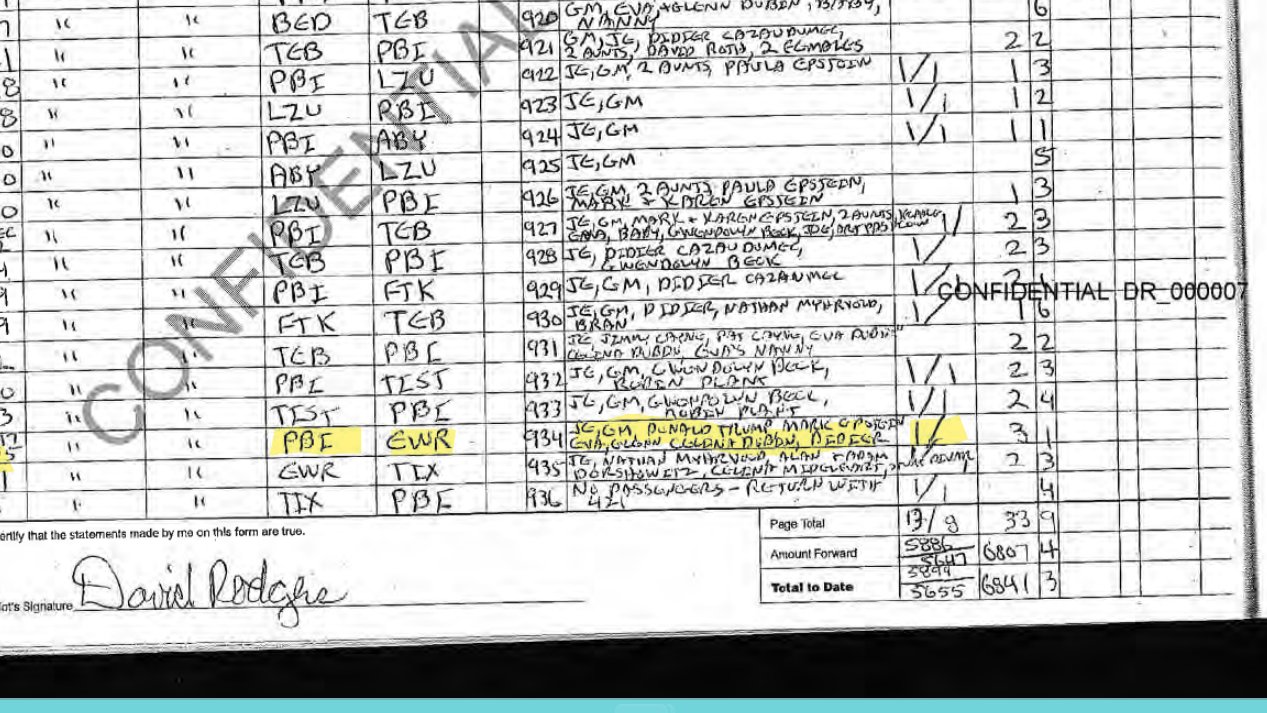 " " BED TEB 920 GM, EVA, + GLENN DUBIN,
NANNY 6
" " TEB PBI 921 GM, JE, DIDIER CAZAUDUMEC,
2 AUNTS, DAVID ROTH, 2 FEMALES 2 2
8 " " PBI LZU 922 JE, GM, 2 AUNTS, PAULA EPSTEIN 1/1 1 3
8 " " LZU PBI 923 JE, GM 1/1 1 2
0 " " PBI ABY 924 JE, GM 1/1 1 1
0 " " ABY LZU 925 JE, GM 5
0 " " LZU PBI 926 JE, GM, 2 AUNTS PAULA EPSTEIN,
MARY + KAREN EPSTEIN 1 3
" " PBI TEB 927 JE, GM, MARK + KAREN EPSTEIN, 2 AUNTS,
EVA, BABY, GWENDOLYN BECK, JOE, 1/ 2 3
" " TEB PBI 928 JE, DIDIER CAZAUDUMEC,
GWENDOLYN BECK 1/ 2 3
9 " " PBI FTK 929 JE, GM, DIDIER CAZAUMEC 1/
CONFIDENTIAL DR_000007
9 " " FTK TEB 930 JE, GM, DIDIER, NATHAN MYHRVOLD,
BRAN 1/ 1 6
" " TEB PBI 931 JE, JIMMY CAYNE, PAT CAYNE, EVA DUBIN
CELINA DUBIN, EVA'S NANNY 2 2
0 " " PBI TEST 932 JE, GM, GWENDOLYN BECK,
ROBIN PLANT 1/1 2 3
3 " " TEST PBI 933 JE, GM, GWENDOLYN BECK,
ROBIN PLANT 1/1 2 4
" " PBI EWR 934 JE, GM, DONALD TRUMP MARK EPSTEIN
EVA, GLENN CELINA DUBIN, DIDIER 1/ 3 1
1 " " EWR TIX 935 JE, NATHAN MYHRVOLD, ALAN + ADAM
DORSHOWITZ, CELENA MIDELFART, 2 3
" " TIX PBI 936 NO PASSENGERS - RETURN WITH
421 1/1 4
CONFIDENTIAL
ertify that the statements made by me on this form are true.
Page Total 13/8 33 9
Amount Forward 5886 5647 6807 4
Total to Date 5899 5655 6841 3
ot's Signature David Rodgers